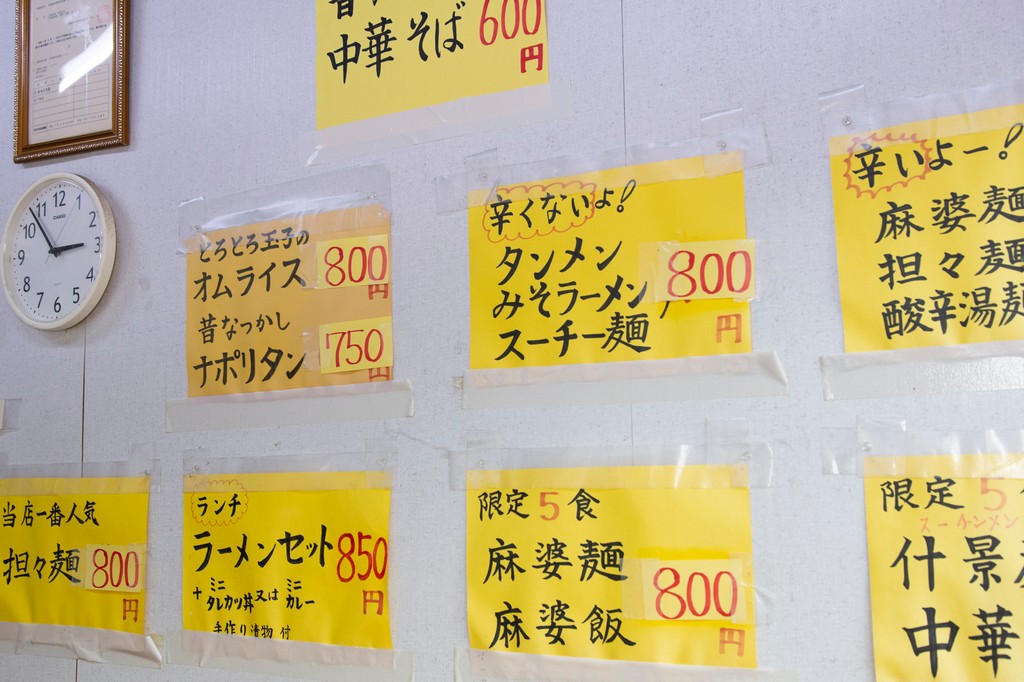 中華そば 600
円
12
11
1
2
3
9
4
8
7
6
5
とろとろ玉子の
オムライス 800
円
昔なつかし
ナポリタン 750
円
辛くないよ!
タンメン
みそラーメン 800
スーチー麺 円
辛いよー!
麻婆麺
担々麺
酸辛湯麺
当店一番人気
担々麺 800
円
ランチ
ラーメンセット 850
円
+ ミニタレカツ丼又はミニカレー
手作り漬物 付
限定5食
麻婆麺 800
麻婆飯 円
限定5
スーチンメン
什景
中華